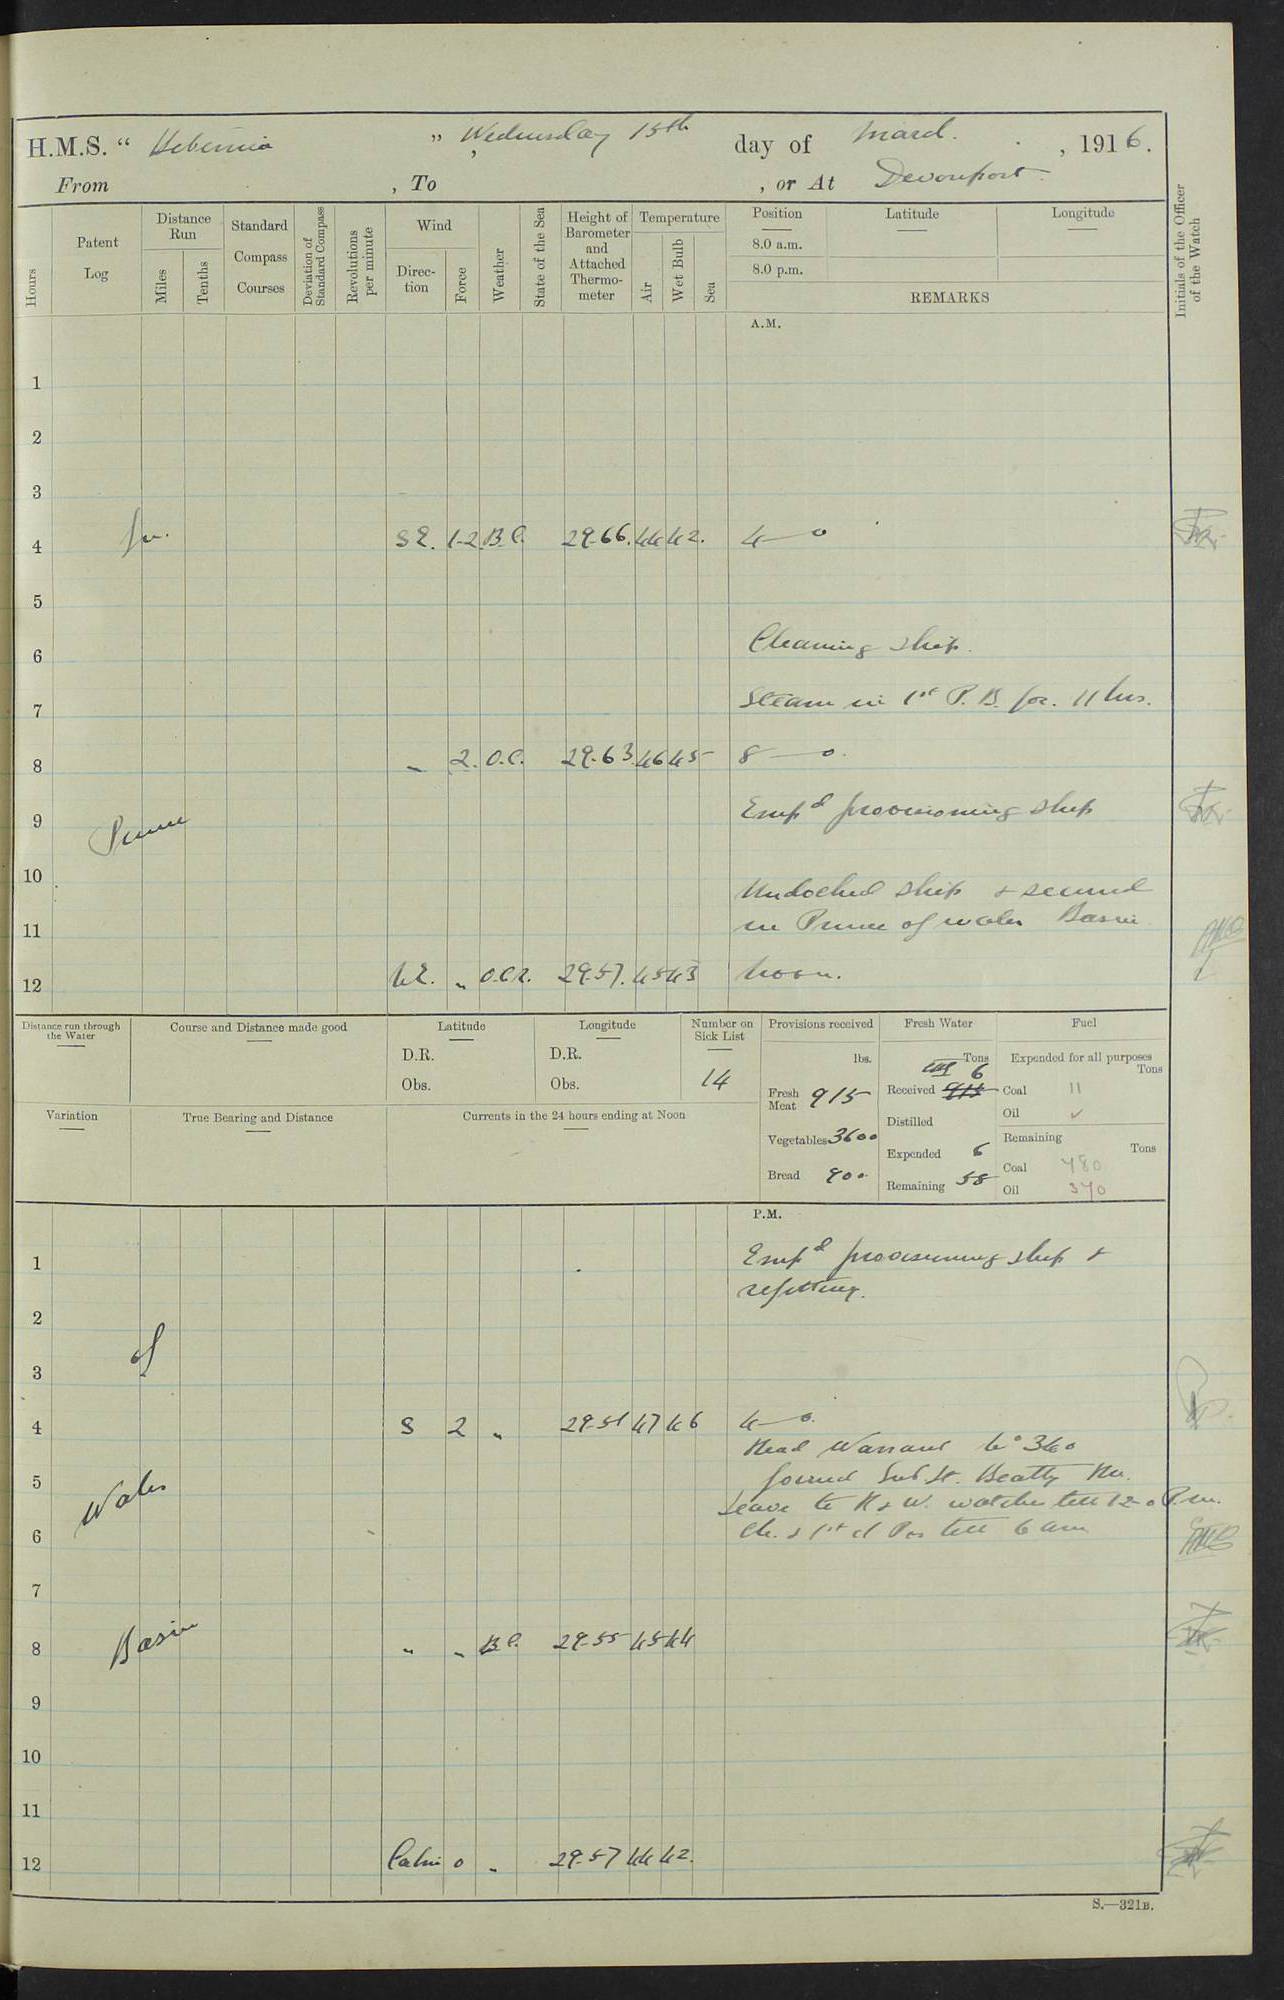 H.M.S. “ Hibernia ” Wednesday 15th day of March , 1916.
From , To , or At Devonport
Hours
Patent Log
Distance Run
Miles
Tenths
Standard Compass Courses
Deviation of Standard Compass
Revolutions per minute
Wind
Direction
Force
Weather
State of the Sea
Height of Barometer and Attached Thermometer
Temperature
Air
Wet Bulb
Sea
Position
Latitude
Longitude
8.0 a.m.
8.0 p.m.
REMARKS
Initials of the Officer of the Watch
A.M.
1
2
3
4 In. S E. 1-2 B.C. 29.66. 44 42. 4—0
5
6 Cleaning ship.
7 Steam in 1st P. B. for 11 hrs.
8 " 2. O.C. 29.63 46 45 8—0.
9 Prince Empd provisioning ship
10 Undocked ship & secured
11 in Prince of Wales Basin
12 N E. " O.C.R. 29.57. 45 43 Noon.
Distance run through the Water
Course and Distance made good
Latitude
D.R.
Obs.
Longitude
D.R.
Obs.
Number on Sick List
14
Provisions received
lbs.
Fresh Meat 915
Vegetables 3600
Bread 900
Fresh Water
Tons
Received 915 6
Distilled
Expended 6
Remaining 58
Fuel
Expended for all purposes
Tons
Coal 11
Oil ✓
Remaining
Tons
Coal 480
Oil 370
Variation
True Bearing and Distance
Currents in the 24 hours ending at Noon
P.M.
1 Empd provisioning ship &
refitting.
2
3 of
4 S 2 " 29.51 47 46 4—0.
Read Warrant No 340
5 Wales Joined Sub. Lt. Beatty
Leave to R & W. watches till 12-0 P.m.
6 Ch. & 1st cl Pos till 6 am
7
8 Basin " " B.C. 29.55 45 44
9
10
11
12 Calm 0 " 29.57 44 42.
S.—321B.